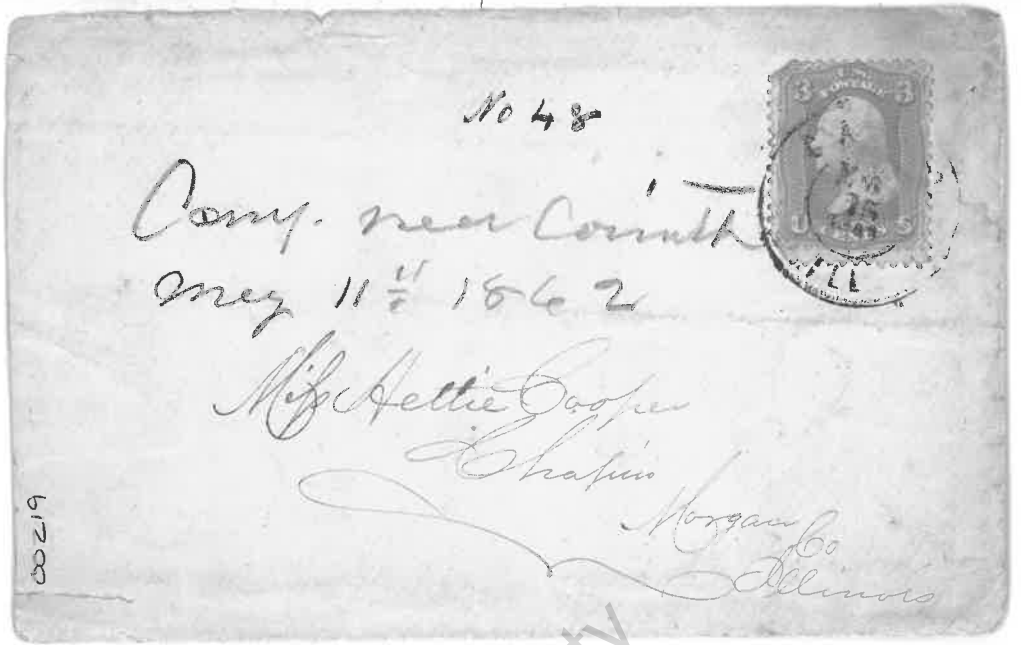 No 48
Camp. near Corinth
May 11th 1862
Miss Hettie Cooper
Chapin
Morgan
Co
Illinois
00219
3 3
U S
POSTAGE
ILL
ty